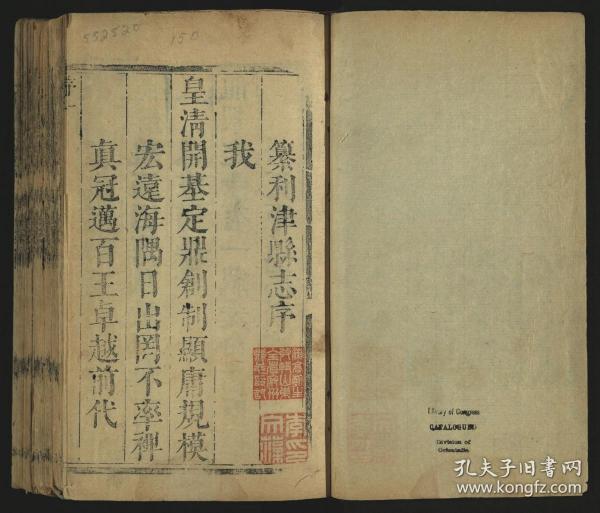 纂利津縣志序
我
皇清開基定鼎創制顯庸規模
宏遠海隅日出罔不率禆
真冠邁百王卓越前代
序
一
552520
150
Library of Congress
CATALOGUED
Division of
Orientalia
孔夫子旧书网
www.kongfz.com